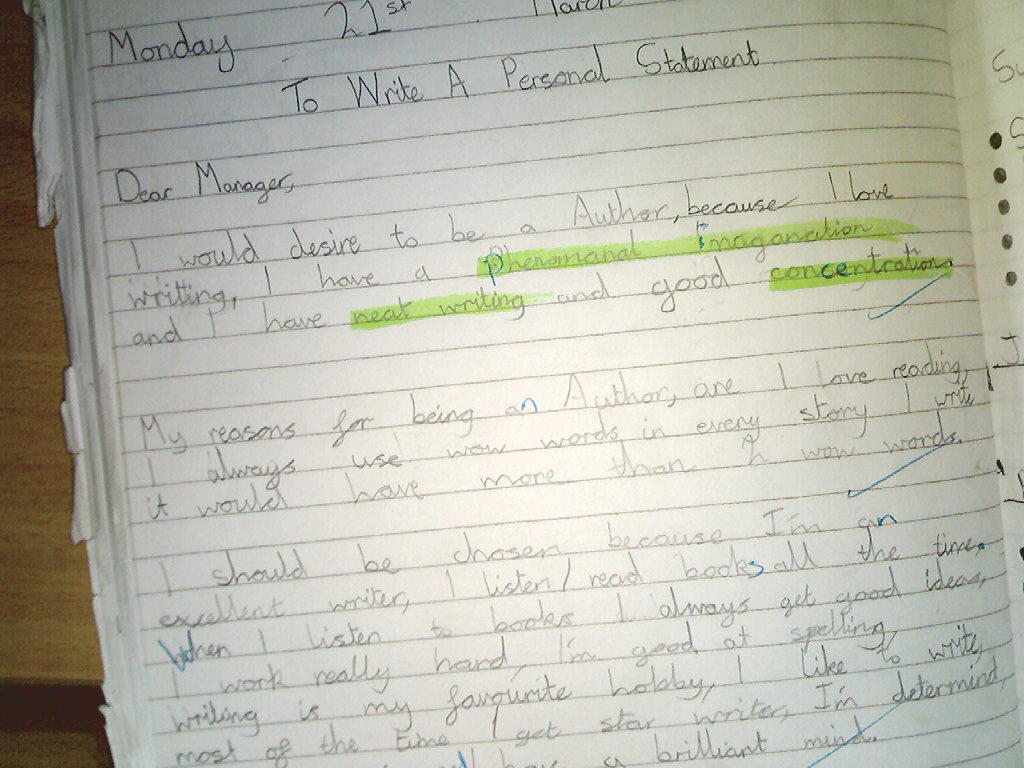 Monday 21st March
To Write A Personal Statement
Dear Manager,
I would desire to be a Author, because I love
writting, I have a Phenomanal Imaganation
and I have neat writing and good concentration.
My reasons for being an Author, are I love reading,
I always use wow words in every story I write
it would have more than 2 wow words.
I should be chosen because I'm an
excellent writer, I listen/read books all the time.
When I listen to books I always get good ideas,
I work really hard, I'm good at spelling,
writing is my favourite hobby, I like to write,
most of the time I get star writer, I'm determind,
have a brilliant mind.